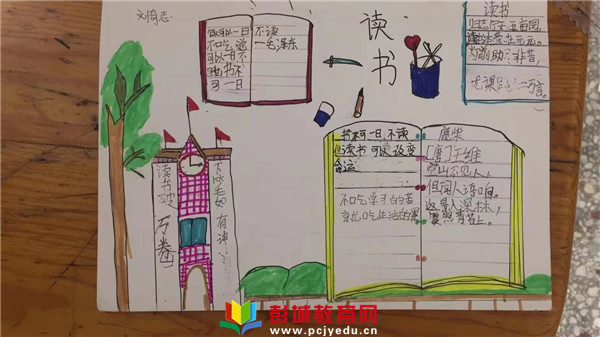 刘简志
饭可以一日
不吃，觉
可以一日不
睡，书不
可一日
不读
—毛泽东
读
书
读书
书不可一日不读
读书可以改变
命运
不吃学习的苦
就吃生活的苦
鹿柴
[唐]王维
空山不见人，
但闻人语响。
返景入深林，
复照青苔上。
读书破万卷
下笔如有神
彭城教育网
www.pcjyedu.cn